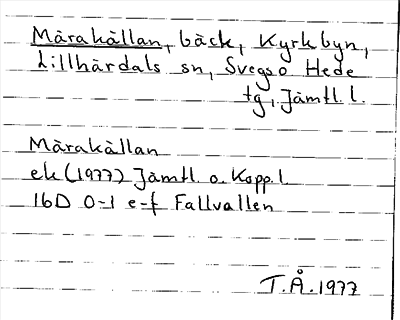 Märakällan, bäck, Kyrkbyn,
Lillhärdals sn, Svegs o Hede
tg, Jämtl. l.
Märakällan
ek (1977) Jämtl. o. Kopp. l.
16D 0-1 e-f Fallvallen
T.Å. 1977